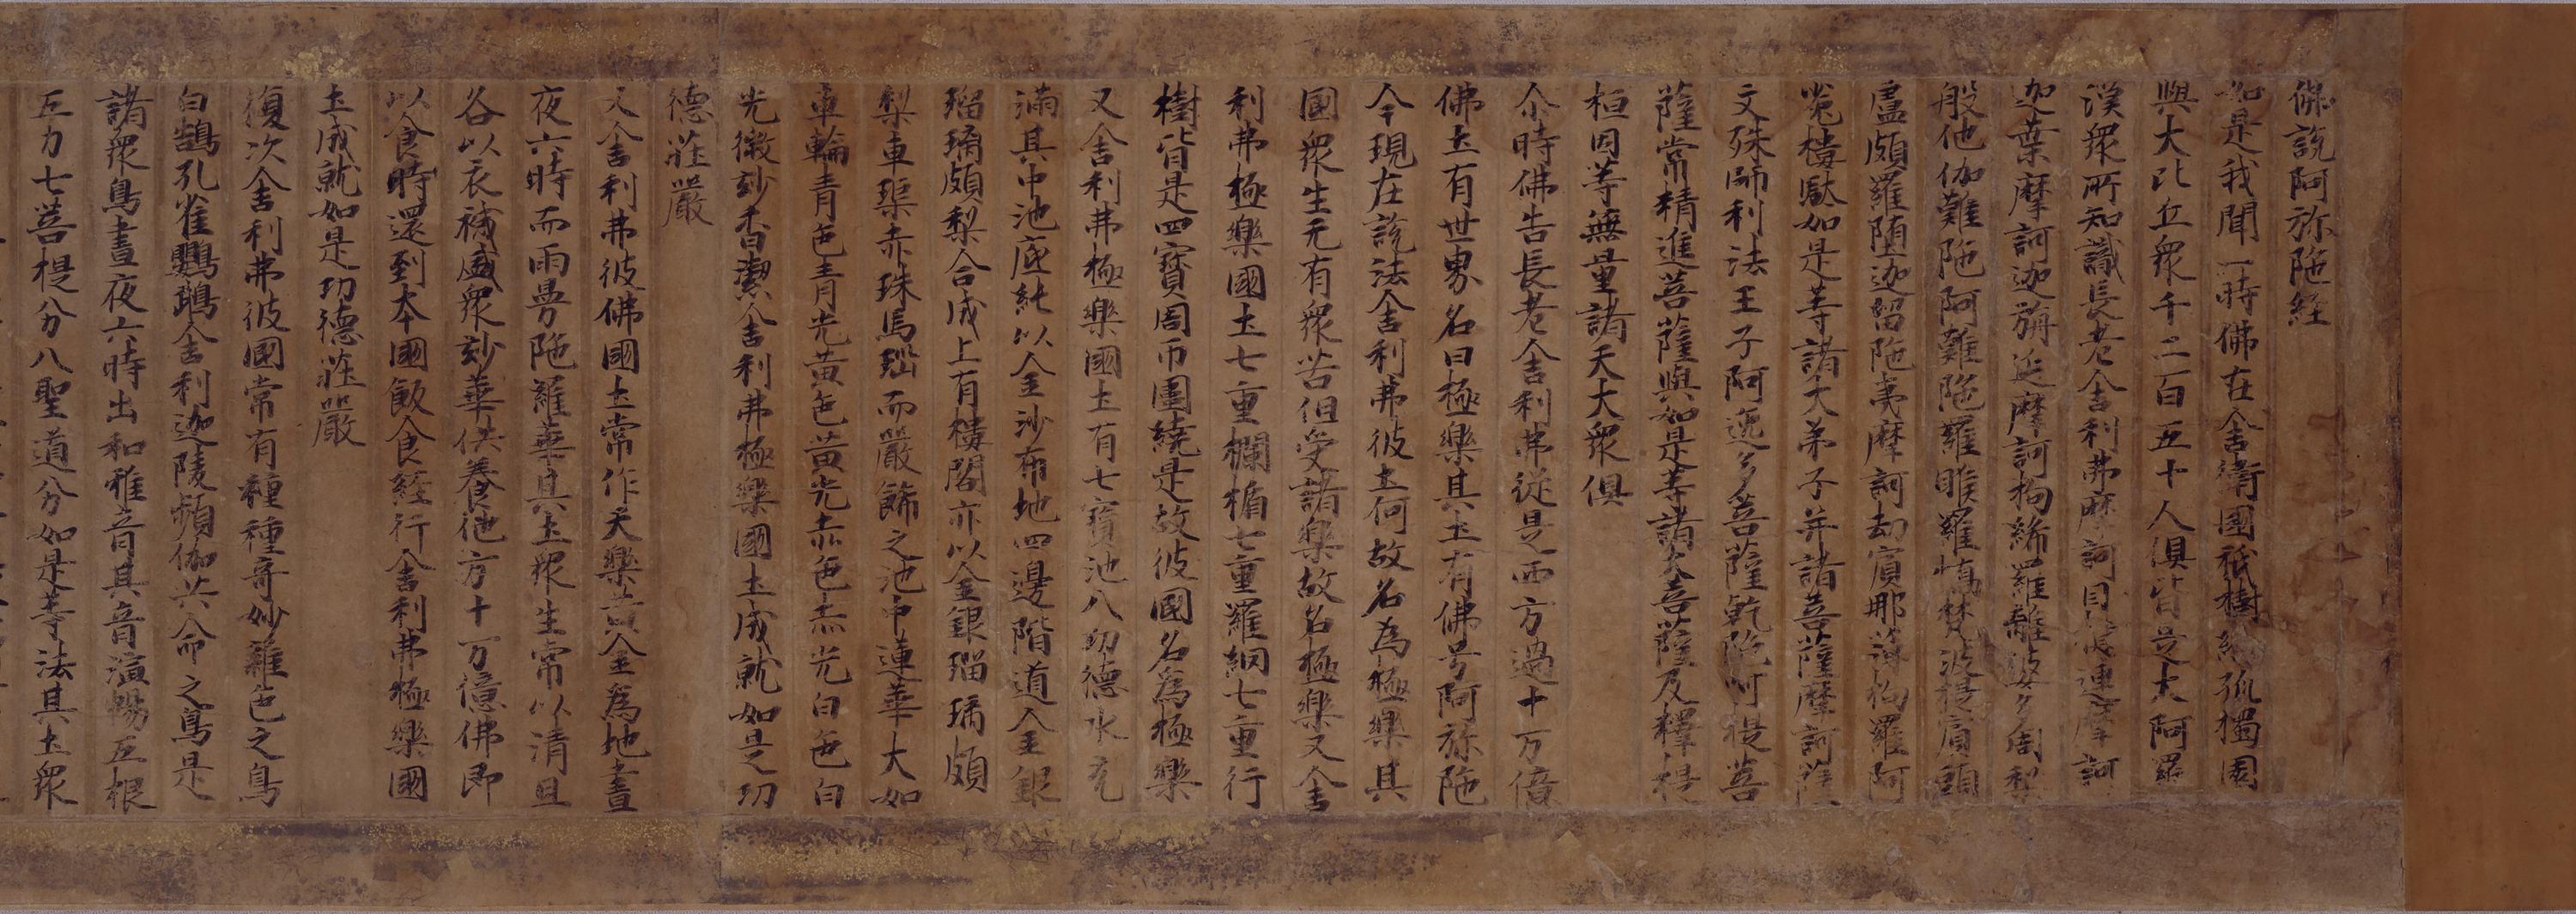 佛說阿弥陁経
如是我聞一時佛在舍衛國祇樹給孤獨園
與大比丘衆千二百五十人俱皆是大阿羅
漢衆所知識長老舍利弗摩訶目揵連摩訶
迦葉摩訶迦旃延摩訶拘絺羅離婆多周梨
般他伽難陁阿難陁羅睺羅憍梵波提賓頭
盧頗羅墮迦留陁夷摩訶劫賓那薄拘羅阿
㝹樓馱如是等諸大弟子并諸菩薩摩訶薩
文殊師利法王子阿逸多菩薩乾陁訶提菩
薩常精進菩薩與如是等諸大菩薩及釋提
桓因等無量諸天大衆俱
尒時佛告長老舍利弗從是西方過十万億
佛土有世界名曰極樂其土有佛号阿弥陁
今現在說法舍利弗彼土何故名為極樂其
國衆生无有衆苦但受諸樂故名極樂又舍
利弗極樂國土七重欄楯七重羅網七重行
樹皆是四寶周帀圍繞是故彼國名為極樂
又舍利弗極樂國土有七寶池八功德水充
滿其中池底純以金沙布地四邊階道金銀
瑠璃頗梨合成上有樓閣亦以金銀瑠璃頗
梨車璖赤珠馬瑙而嚴飾之池中蓮華大如
車輪青色青光黃色黃光赤色赤光白色白
光微妙香潔舍利弗極樂國土成就如是功
德莊嚴
又舍利弗彼佛國土常作天樂黃金為地晝
夜六時而雨曼陁羅華其土衆生常以清旦
各以衣裓盛衆妙華供養他方十万億佛即
以食時還到本國飯食経行舍利弗極樂國
土成就如是功德莊嚴
復次舍利弗彼國常有種種奇妙雜色之鳥
白鵠孔雀鸚鵡舍利迦陵頻伽共命之鳥是
諸衆鳥晝夜六時出和雅音其音演暢五根
五力七菩提分八聖道分如是等法其土衆